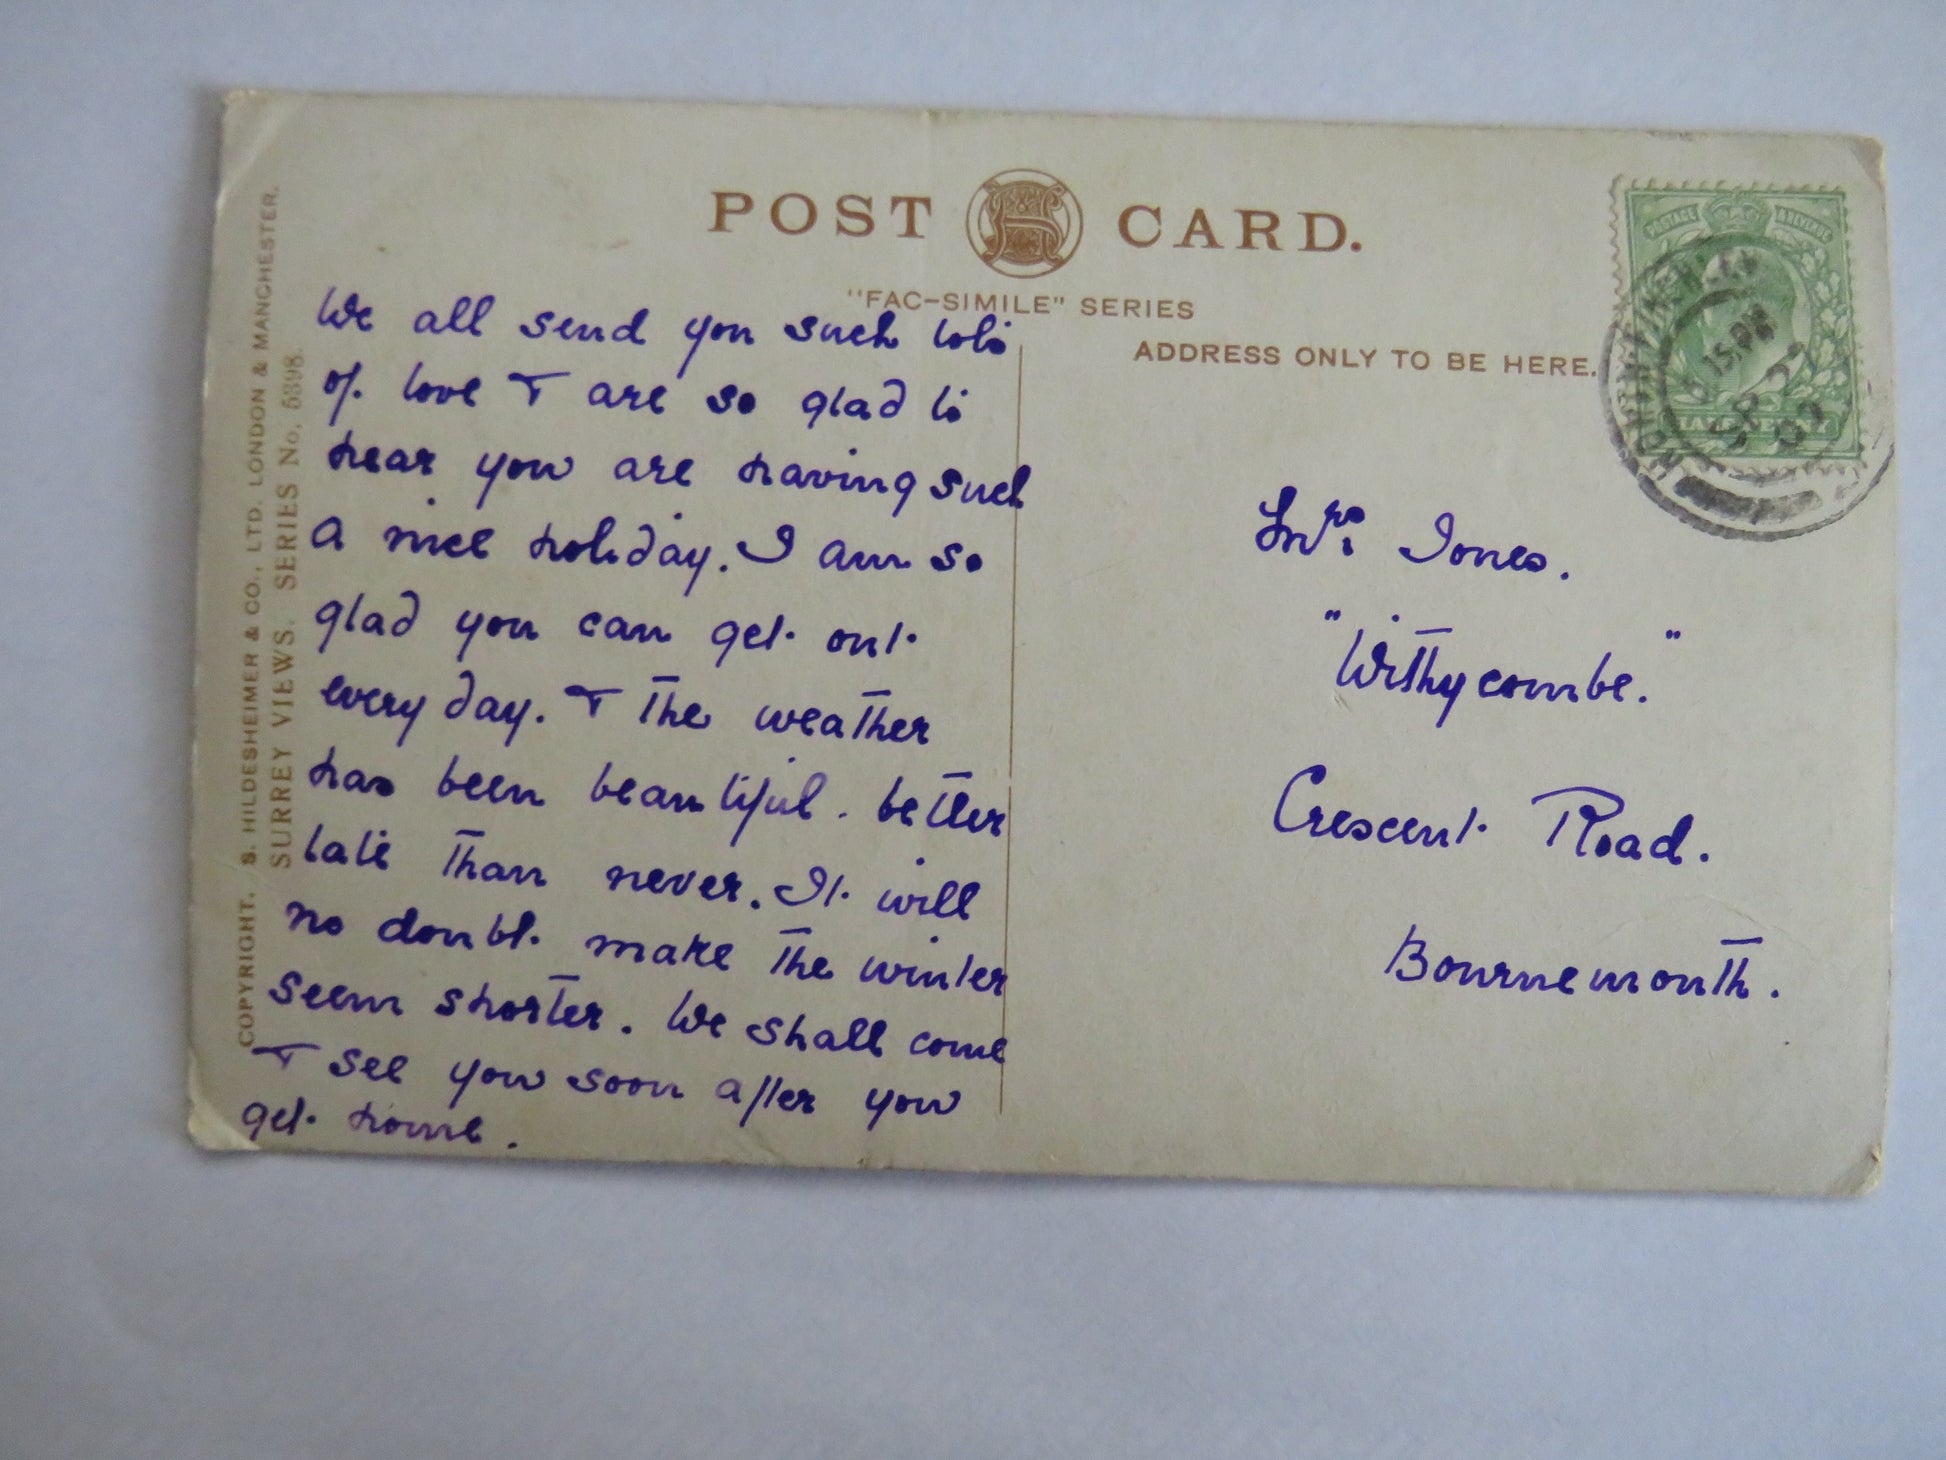 POST CARD.
"FAC-SIMILE" SERIES
ADDRESS ONLY TO BE HERE.
COPYRIGHT. S. HILDESHEIMER & CO., LTD. LONDON & MANCHESTER.
SURREY VIEWS. SERIES No. 5398.
We all send you such lots
of love & are so glad to
hear you are having such
a nice holiday. I am so
glad you can get out
every day. & the weather
has been beautiful. better
late than never. It will
no doubt make the winter
seem shorter. We shall come
& see you soon after you
get home.
Mrs. Jones.
"Withycombe."
Crescent Road.
Bournemouth.
POSTAGE REVENUE
SP 2
09